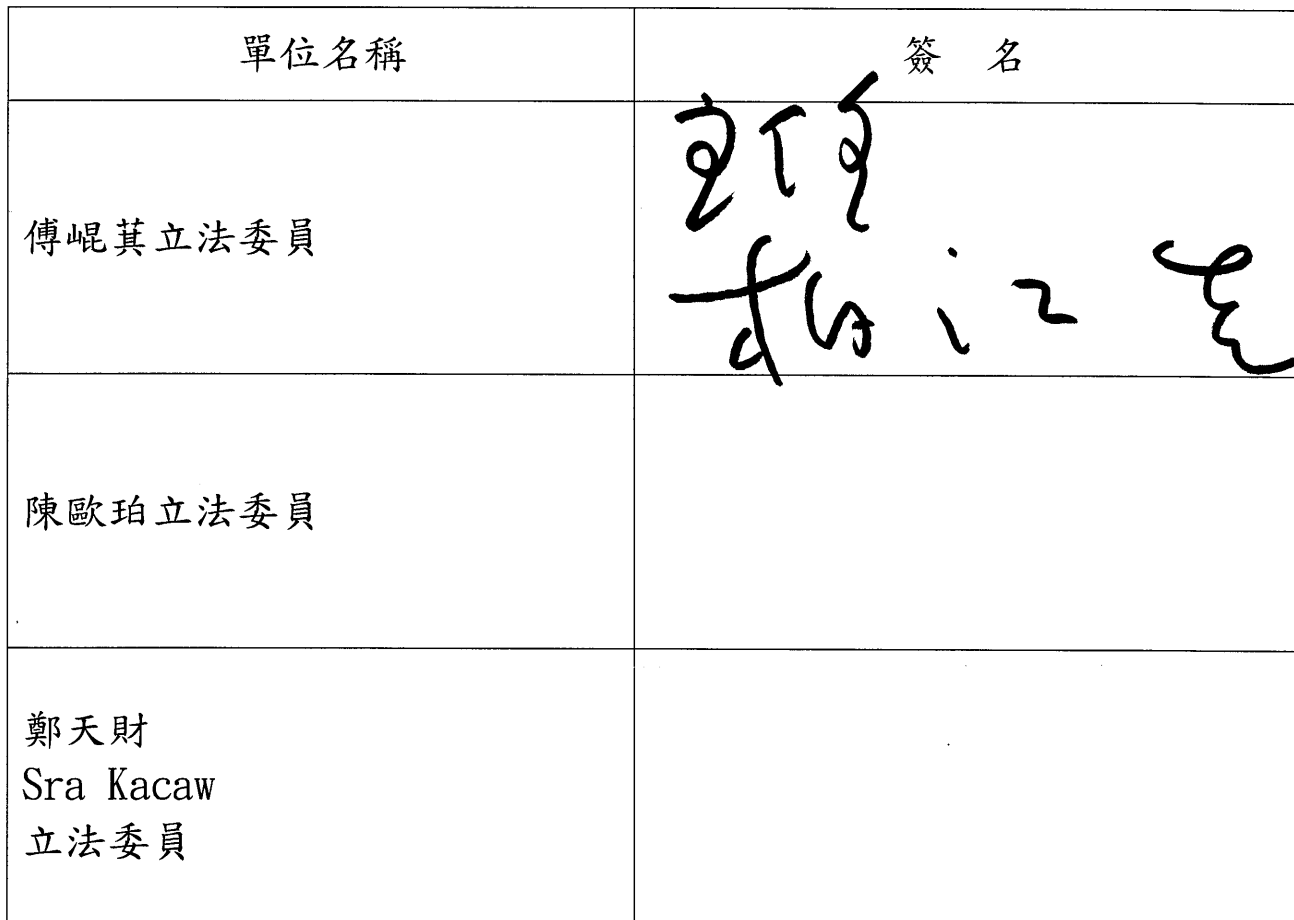 單位名稱
簽 名
傅崐萁立法委員
主任
陳歐珀立法委員
鄭天財
Sra Kacaw
立法委員